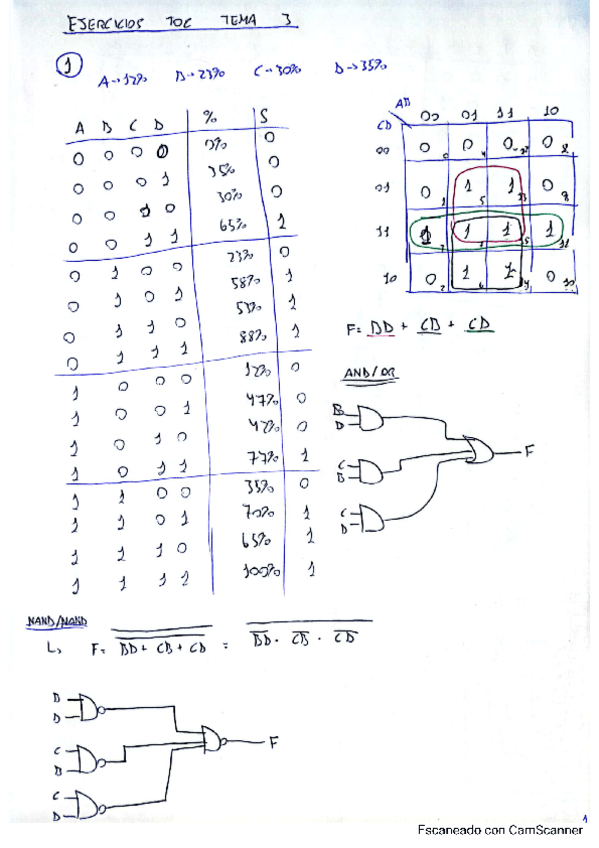 EJERCICIOS TOC TEMA 3
1
A→12% B→23% C→30% D→35%
A B C D % S
0 0 0 0 0% 0
0 0 0 1 35% 0
0 0 1 0 30% 0
0 0 1 1 65% 1
0 1 0 0 23% 0
0 1 0 1 58% 1
0 1 1 0 53% 1
0 1 1 1 88% 1
1 0 0 0 12% 0
1 0 0 1 47% 0
1 0 1 0 42% 0
1 0 1 1 77% 1
1 1 0 0 35% 0
1 1 0 1 70% 1
1 1 1 0 65% 1
1 1 1 1 100% 1
AB
CD
00 01 11 10
00 0 0 0 0
01 0 1 1 0
11 1 1 1 1
10 0 1 1 0
F= BD + CB + CD
AND/OR
B
D
C
B
C
D
F
NAND/NAND
L, F= BD + CB + CD = BD · CB · CD
B
D
C
B
C
D
F
1
Escaneado con CamScanner